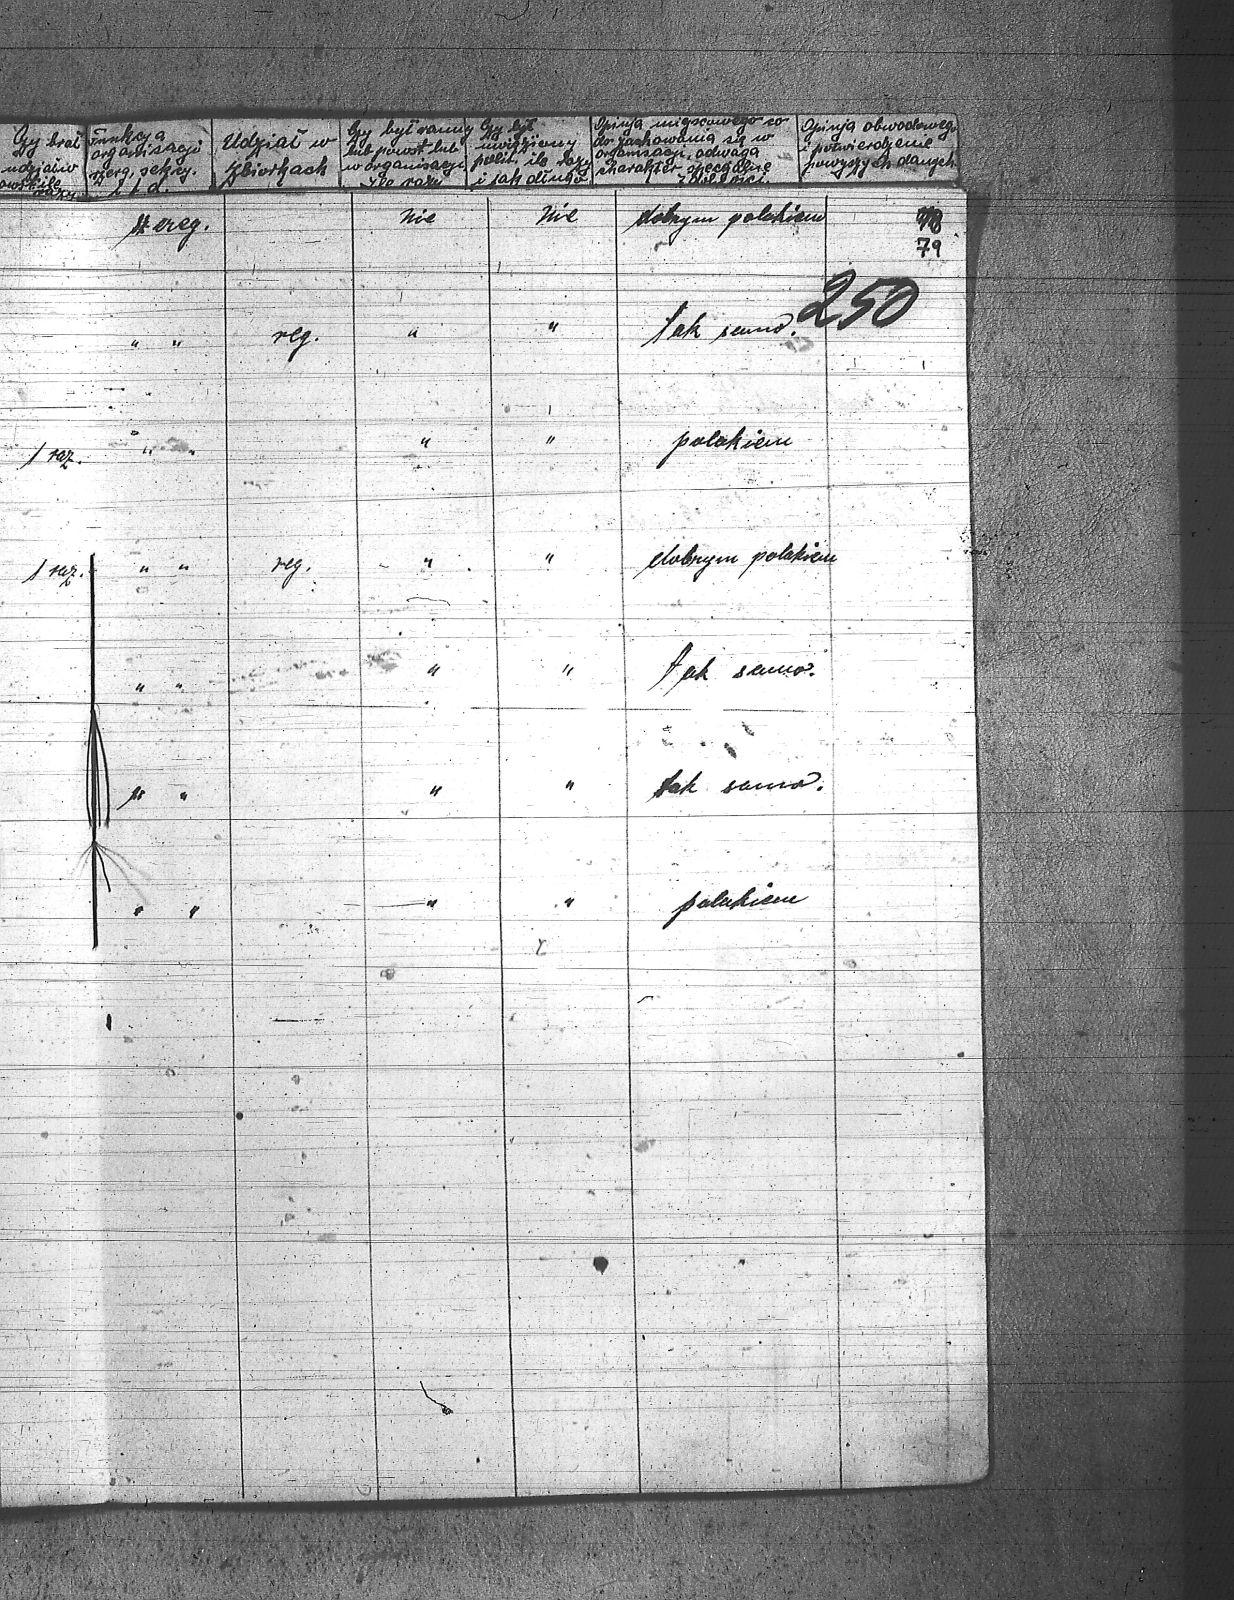 Czy brał
udział w
Funkcja
organizacji
szereg, sekcy.
i t.d.
Udział w
Zbiorkach
Czy był ranny
lub powst lub
w organizacji
ile razy
Czy był
uwięziony
polit. ile razy
i jak długo
Opinja miejscowego co
do zachowania się w
organizacji, odwaga
charakter specjalne
zdolności.
Opinja obwodowego
i potwierdzenie
powyższych danych
szereg. nie nie dobrym polakiem 78
79
250
" " reg. " " tak samo.
1 raz. " " " " polakiem
1 raz. " " reg. " " dobrym polakiem
" " " " tak samo.
" " " " tak samo.
" " " " polakiem